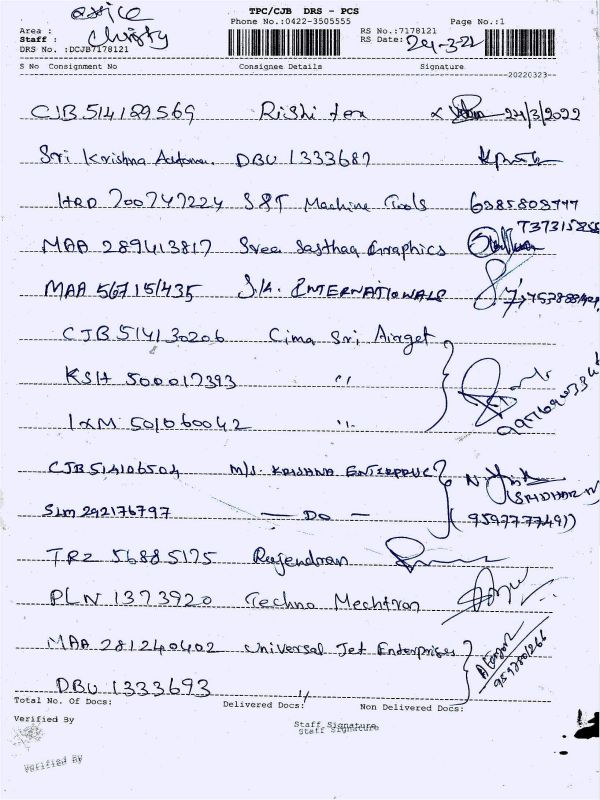 office
TPC/CJB DRS - PCS
Phone No.:0422-3505555 Page No.:1
Area :
Staff : Christy
RS No.:7178121
RS Date: 24-3-22
DRS No. :DCJB7178121
S No Consignment No Consignee Details Signature
20220323--
CJB 514189569 Rishi tex 24/3/2022
Sri Krishna DBU 1333687
HRD 700747224 S&T Machine Tools 6385803777
MAA 289413817 Sree Sasthaa Graphics
MAA 56715/435 INTERNATIONALS
CJB 514130206 Cima Sri Airget
KSH 500017393 "
IXM 501060042 "
CJB514106504 M/S. KRISHNA
SLM 292176797 — DO — SRIDHAR N
TRZ 56885175 Rajendran
PLN 1373920 Techno Mechtron
MAA 281240402 Universal Jet Enterprises
DBU 1333693 "
Total No. Of Docs: Delivered Docs: Non Delivered Docs:
Verified By Staff Signature
Staff Signature
Verified By